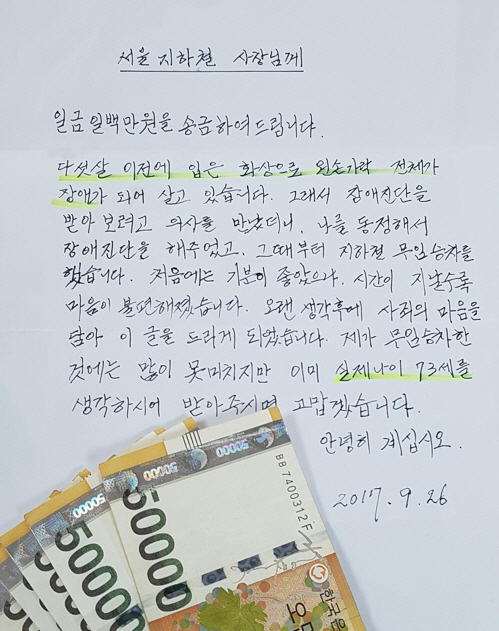 서울 지하철 사장님께
일금 일백만원을 송금하여 드립니다.
다섯살 이전에 입은 화상으로 왼손가락 전체가
장애가 되어 살고 있습니다. 그래서 장애진단을
받아 보려고 의사를 만났더니, 나를 동정해서
장애진단을 해주었고, 그때부터 지하철 무임승차를
했습니다. 처음에는 기분이 좋았으나, 시간이 지날수록
마음이 불편해졌습니다. 오랜 생각후에 사죄의 마음을
담아 이 글을 드리게 되었습니다. 제가 무임승차한
것에는 많이 못미치지만 이미 실제나이 73세를
생각하시어 받아주시면 고맙겠습니다.
안녕히 계십시오.
2017. 9. 26
50000
50000
50000
50000
BB7400312F
50000
50000
50000
한국은
오만